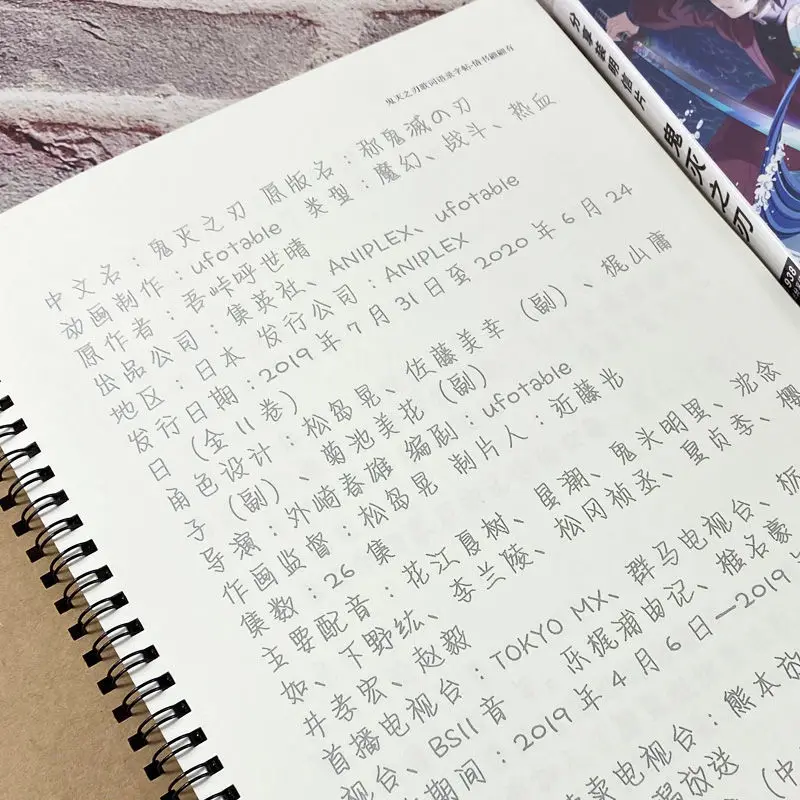 鬼灭之刃歌词语录字帖·情书翩翩有
中文名：鬼灭之刃 原版名：称鬼滅の刃
动画制作：ufotable 类型：魔幻、战斗、热血
原作者：吾峠呼世晴
出品公司：集英社、ANIPLEX、ufotable
地区：日本 发行公司：ANIPLEX
发行日期：2019年7月31日至2020年6月24
日（金11卷）
角色设计：松岛晃、佐藤美幸（副）、梶山庸
子（副）、菊池美花（副）
导演：外崎春雄 编剧：ufotable
作画监督：松岛晃 制片人：近藤光
集数：26集
主要配音：花江夏树、昱潮、鬼头明里、沈念
如、下野纮、李兰陵、松冈祯丞、皇贞季、樱
井孝宏、赵毅
首播电视台：TOKYO MX、群马电视台、枥
视台、BS11 音 乐梶浦由记、椎名豪
期间：2019年4月6日—2019
电视台：熊本放
放送
（中
分享装明信片
鬼灭之刃
938